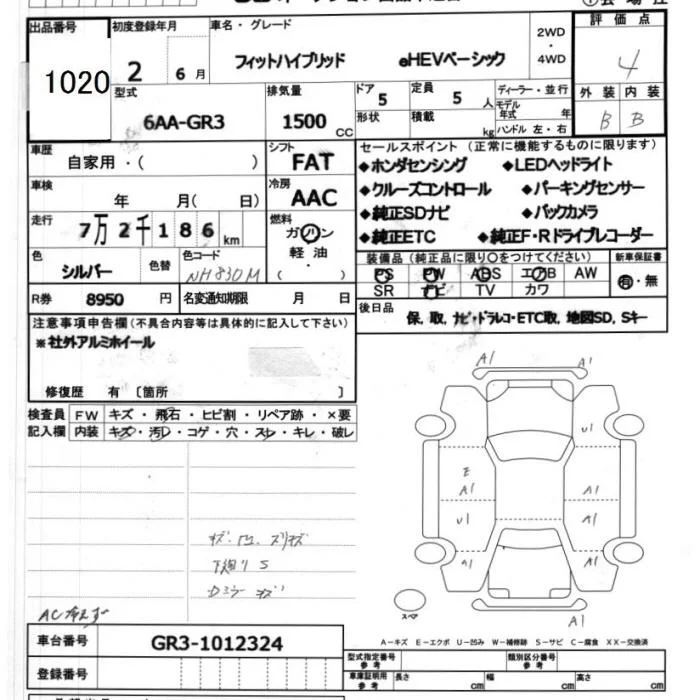 出品番号
1020
初度登録年月
2年 6月
車名・グレード
フィットハイブリッド eHEVベーシック
2WD
・
4WD
評価点
4
外装 内装
B B
型式
6AA-GR3
排気量
1500 CC
ドア
5
形状
定員
5 人
積載
kg
ディーラー・並行
モデル年式 年
ハンドル 左・右
車歴
自家用・( )
シフト
FAT
車検
年 月( 日)
冷房
AAC
走行
7万2千186 km
燃料
ガソリン
軽油
( ・ )
色
シルバー
色替
色コード
NH830M
R券 8950 円
名変通知期限 月 日
セールスポイント (正常に機能するものに限ります)
◆ホンダセンシング ◆LEDヘッドライト
◆クルーズコントロール ◆パーキングセンサー
◆純正SDナビ ◆バックカメラ
◆純正ETC ◆純正F・Rドライブレコーダー
装備品 (純正品に限り○をつけてください)
PS PW ABS エアB AW
SR ナビ TV カワ
新車保証書
有・無
後日品
保, 取, ナビ・ドラレコ・ETC取, 地図SD, Sキー
注意事項申告欄 (不具合内容等は具体的に記入して下さい)
※社外アルミホイール
修復歴 有 〔箇所 〕
検査員 FW キズ・飛石・ヒビ割・リペア跡・×要
記入欄 内装 キズ・汚レ・コゲ・穴・スレ・キレ・破レ
下廻り S
AC冷えず
A1 A1
U1
E
A1 A1
U1 A1
A1 A1
A1
スペア
A-キズ E-エクボ U-凹み W-補修跡 S-サビ C-腐食 XX-交換済
車台番号 GR3-1012324
登録番号
型式指定番号
参考
類別区分番号
参考
車庫証明用
参考
長さ cm 幅 cm 高さ cm